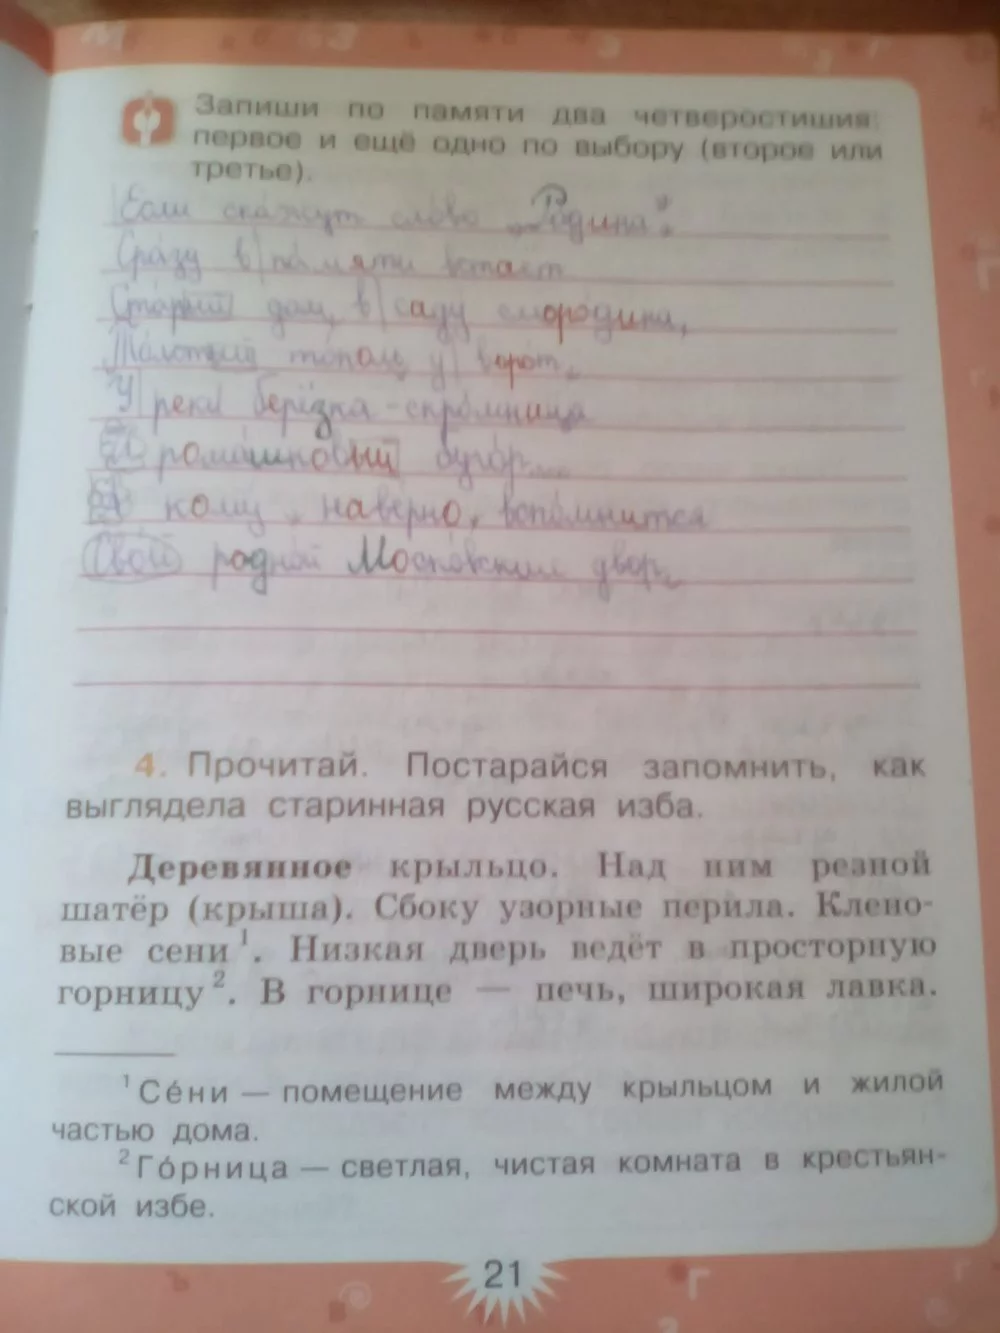 Запиши по памяти два четверостишия:
первое и ещё одно по выбору (второе или
третье).
Если скажут слово „Родина",
Сразу в памяти встаёт
Старый дом, в саду смородина,
Толстый тополь у ворот.
У реки берёзка-скромница
И ромашковый бугор...
А кому, наверно, вспомнится
Свой родной Московский двор.
4. Прочитай. Постарайся запомнить, как
выглядела старинная русская изба.
Деревянное крыльцо. Над ним резной
шатёр (крыша). Сбоку узорные перила. Клено-
вые сени¹. Низкая дверь ведёт в просторную
горницу². В горнице — печь, широкая лавка.
¹ Се́ни — помещение между крыльцом и жилой
частью дома.
² Го́рница — светлая, чистая комната в крестьян-
ской избе.
21